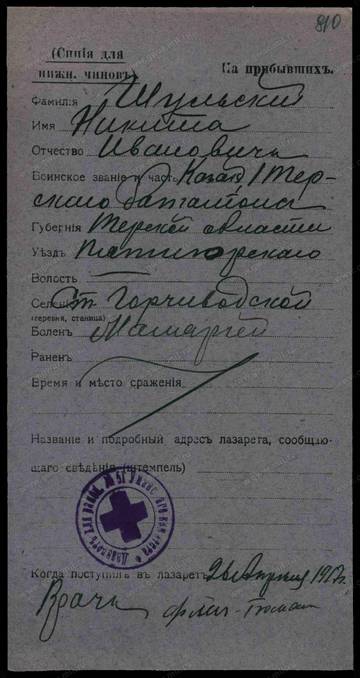 810
(Синія для
нижн. чиновъ)
На прибывшихъ.
Фамилія Шульский
Имя Никита
Отчество Ивановичъ
Воинское званіе и часть Казакъ 1 Тер-
скаго баталіона
Губернія Терской области
Уѣздъ Пятигорскаго
Волость
Селеніе Ст. Горячеводской
(деревня, станица)
Боленъ Малярией
Раненъ
Время и мѣсто сраженія
Названіе и подробный адресъ лазарета, сообщаю-
щаго свѣдѣнія (штемпель)
Когда поступилъ въ лазаретъ 26 Апреля 1917 г.
Врачъ